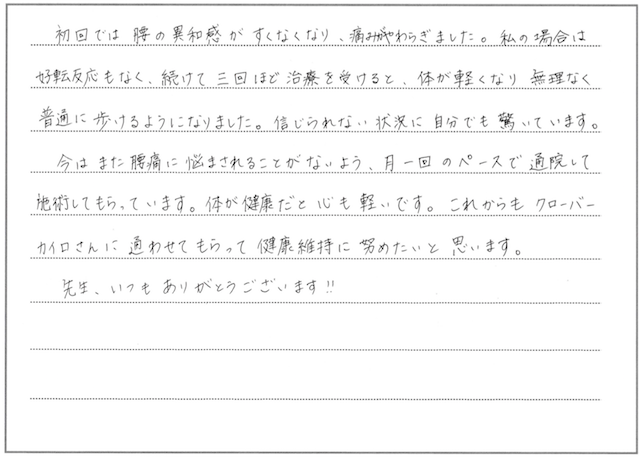 初回では 腰の異和感が すくなくなり、痛みがやわらぎました。私の場合は
好転反応もなく、続けて 三回ほど 治療を受けると、体が軽くなり 無理なく
普通に 歩けるようになりました。信じられない 状況に 自分でも 驚いています。
今は また 腰痛に 悩まされることがないよう、月一回 のペースで 通院して
施術してもらっています。体が健康だと 心も 軽いです。これからも クローバー
カイロさんに 通わせて もらって 健康維持に 努めたいと 思います。
先生、いつも ありがとうございます!!